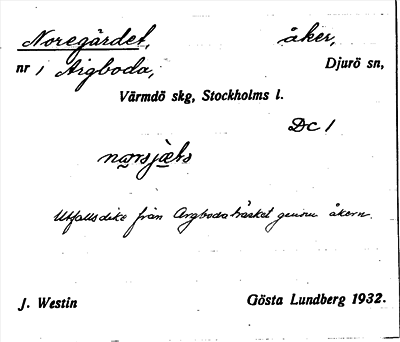 Noregärdet, åker,
nr 1 Argboda, Djurö sn,
Värmdö skg, Stockholms l.
Dc 1
Utfallsdike från Argboda träsket genom åkern.
J. Westin Gösta Lundberg 1932.